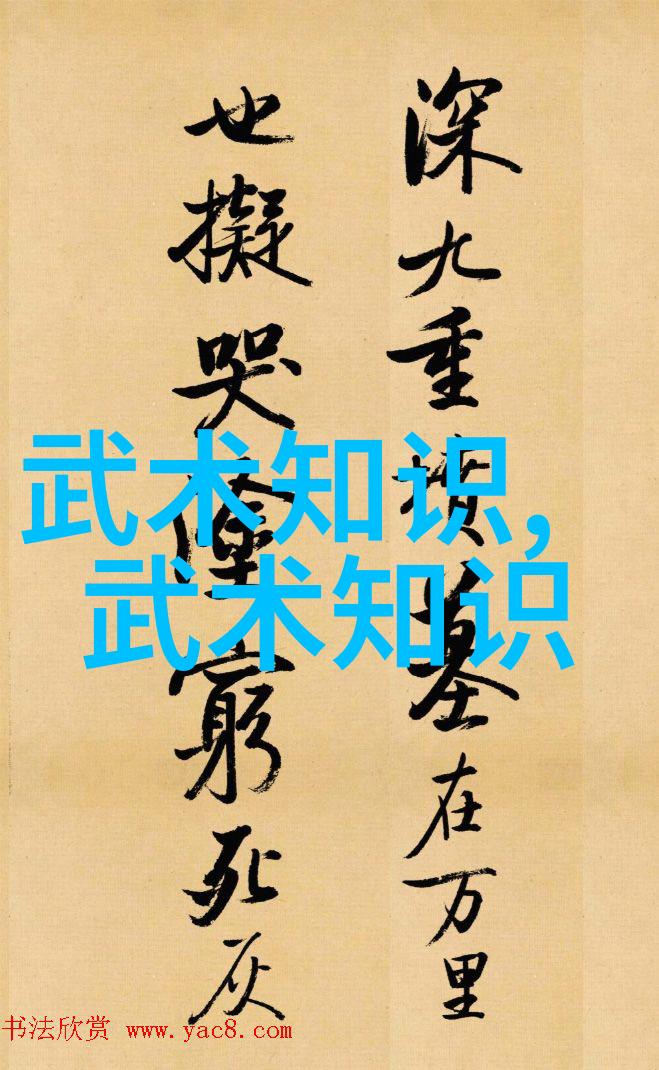 深九重墳墓在万里
也擬哭塗窮死灰
武术知识,
武术知识
书法欣赏 www.yac8.com